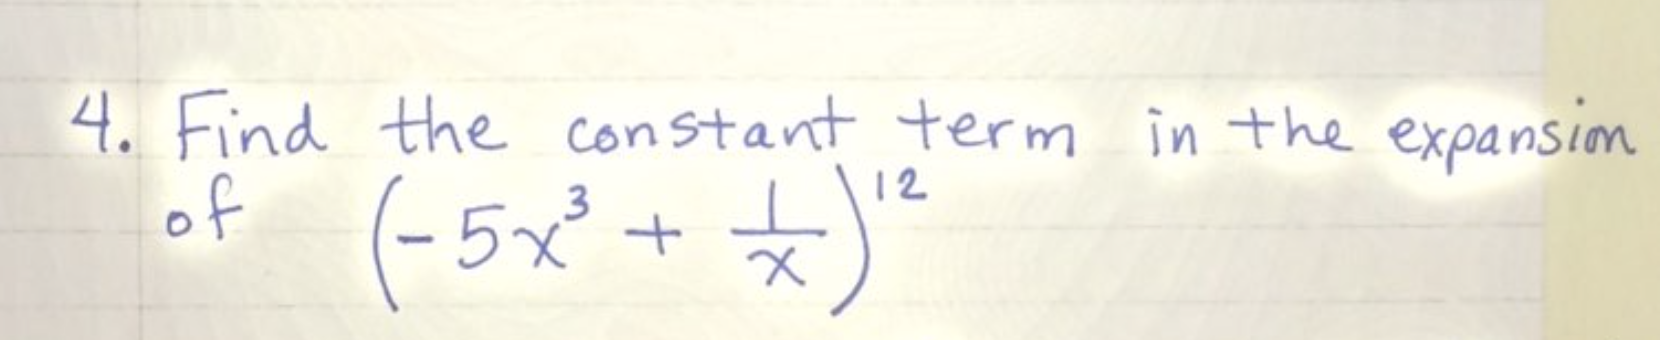 4. Find the constant term in the expansion
of (-5x³ + 1/x)¹²